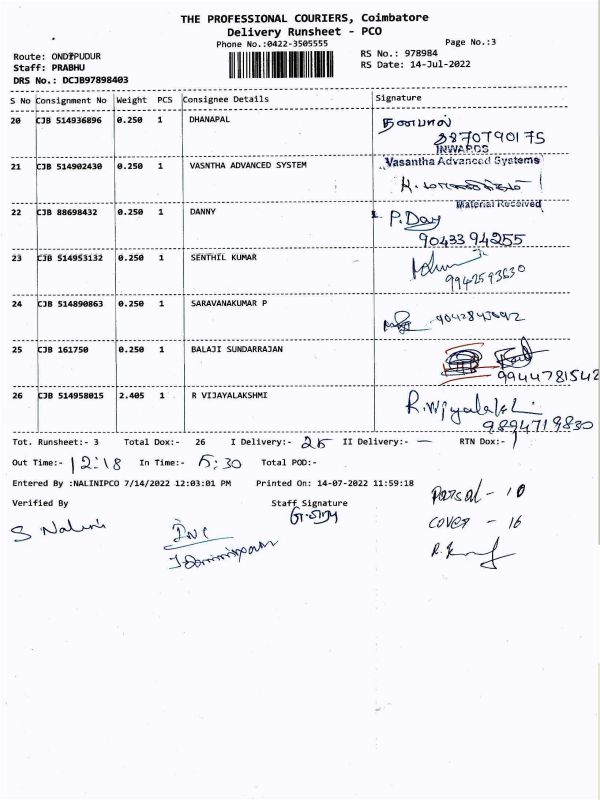 THE PROFESSIONAL COURIERS, Coimbatore
Delivery Runsheet - PCO
Phone No.:0422-3505555
Page No.:3
Route: ONDIPUDUR
RS No.: 978984
Staff: PRABHU
RS Date: 14-Jul-2022
DRS No.: DCJB97898403
S No Consignment No Weight PCS Consignee Details Signature
20 CJB 514936896 0.250 1 DHANAPAL தனபால்
INWARDS
21 CJB 514902430 0.250 1 VASNTHA ADVANCED SYSTEM Vasantha Advanced Systems
Material Received
22 CJB 88698432 0.250 1 DANNY P. Day
9043394255
23 CJB 514953132 0.250 1 SENTHIL KUMAR
9942593630
24 CJB 514890863 0.250 1 SARAVANAKUMAR P
25 CJB 161750 0.250 1 BALAJI SUNDARRAJAN
9944781542
26 CJB 514958015 2.405 1 R VIJAYALAKSHMI R. Vijyalakshi
9894719830
Tot. Runsheet:- 3 Total Dox:- 26 I Delivery:- 25 II Delivery:- — RTN Dox:- 1
Out Time:- 12:18 In Time:- 5:30 Total POD:-
Entered By :NALINIPCO 7/14/2022 12:03:01 PM Printed On: 14-07-2022 11:59:18
Verified By Staff Signature
Parsal - 10
cover - 16
S Nalini